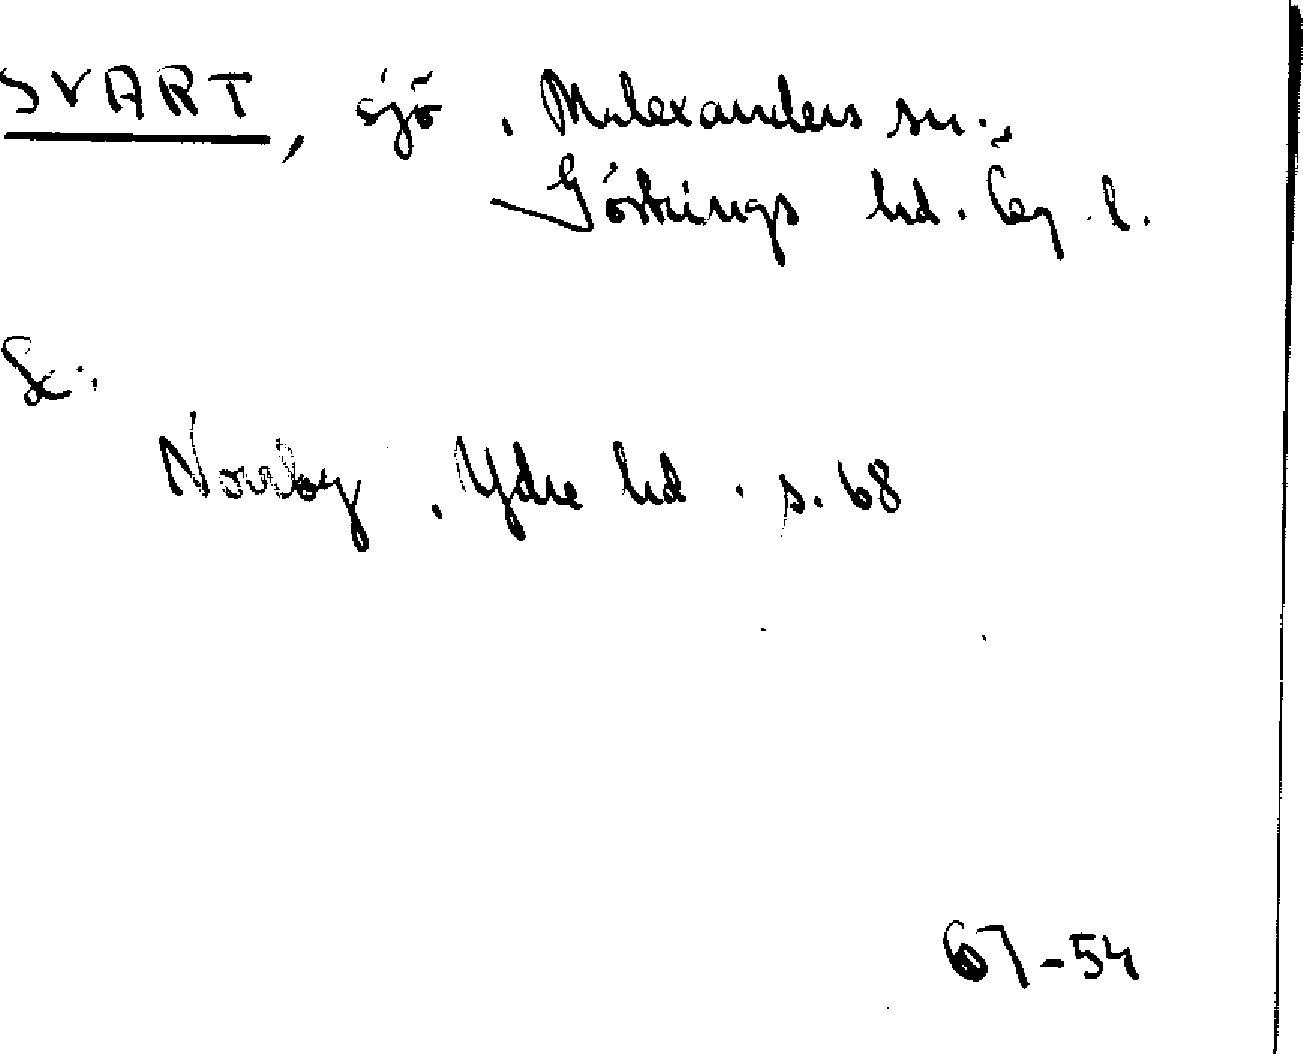 SVART, sjö, Malexanders sn.,
Göstrings hd. Ög. l.
Se:
Norrby, Ydre hd. s. 68
67-54